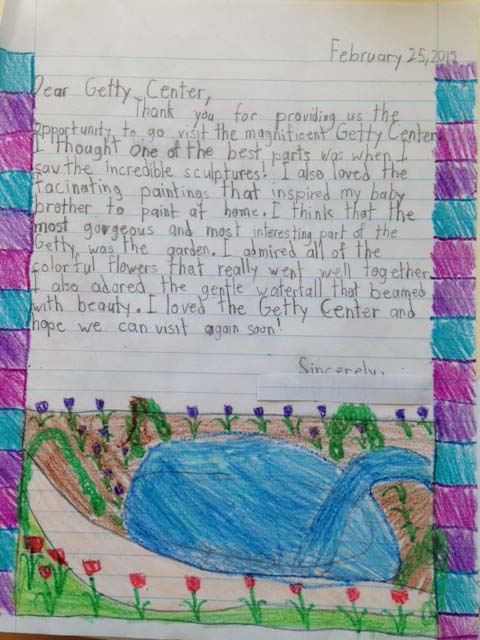 February 25, 2015
Dear Getty Center,
Thank you for providing us the
opportunity to go visit the magnificent Getty Center.
I thought one of the best parts was when I
saw the incredible sculptures! I also loved the
facinating paintings that inspired my baby
brother to paint at home. I think that the
most gorgeous and most interesting part of the
Getty was the garden. I admired all of the
colorful flowers that really went well together.
I also adored the gentle waterfall that beamed
with beauty. I loved the Getty Center and
hope we can visit again soon!
Sincerely,